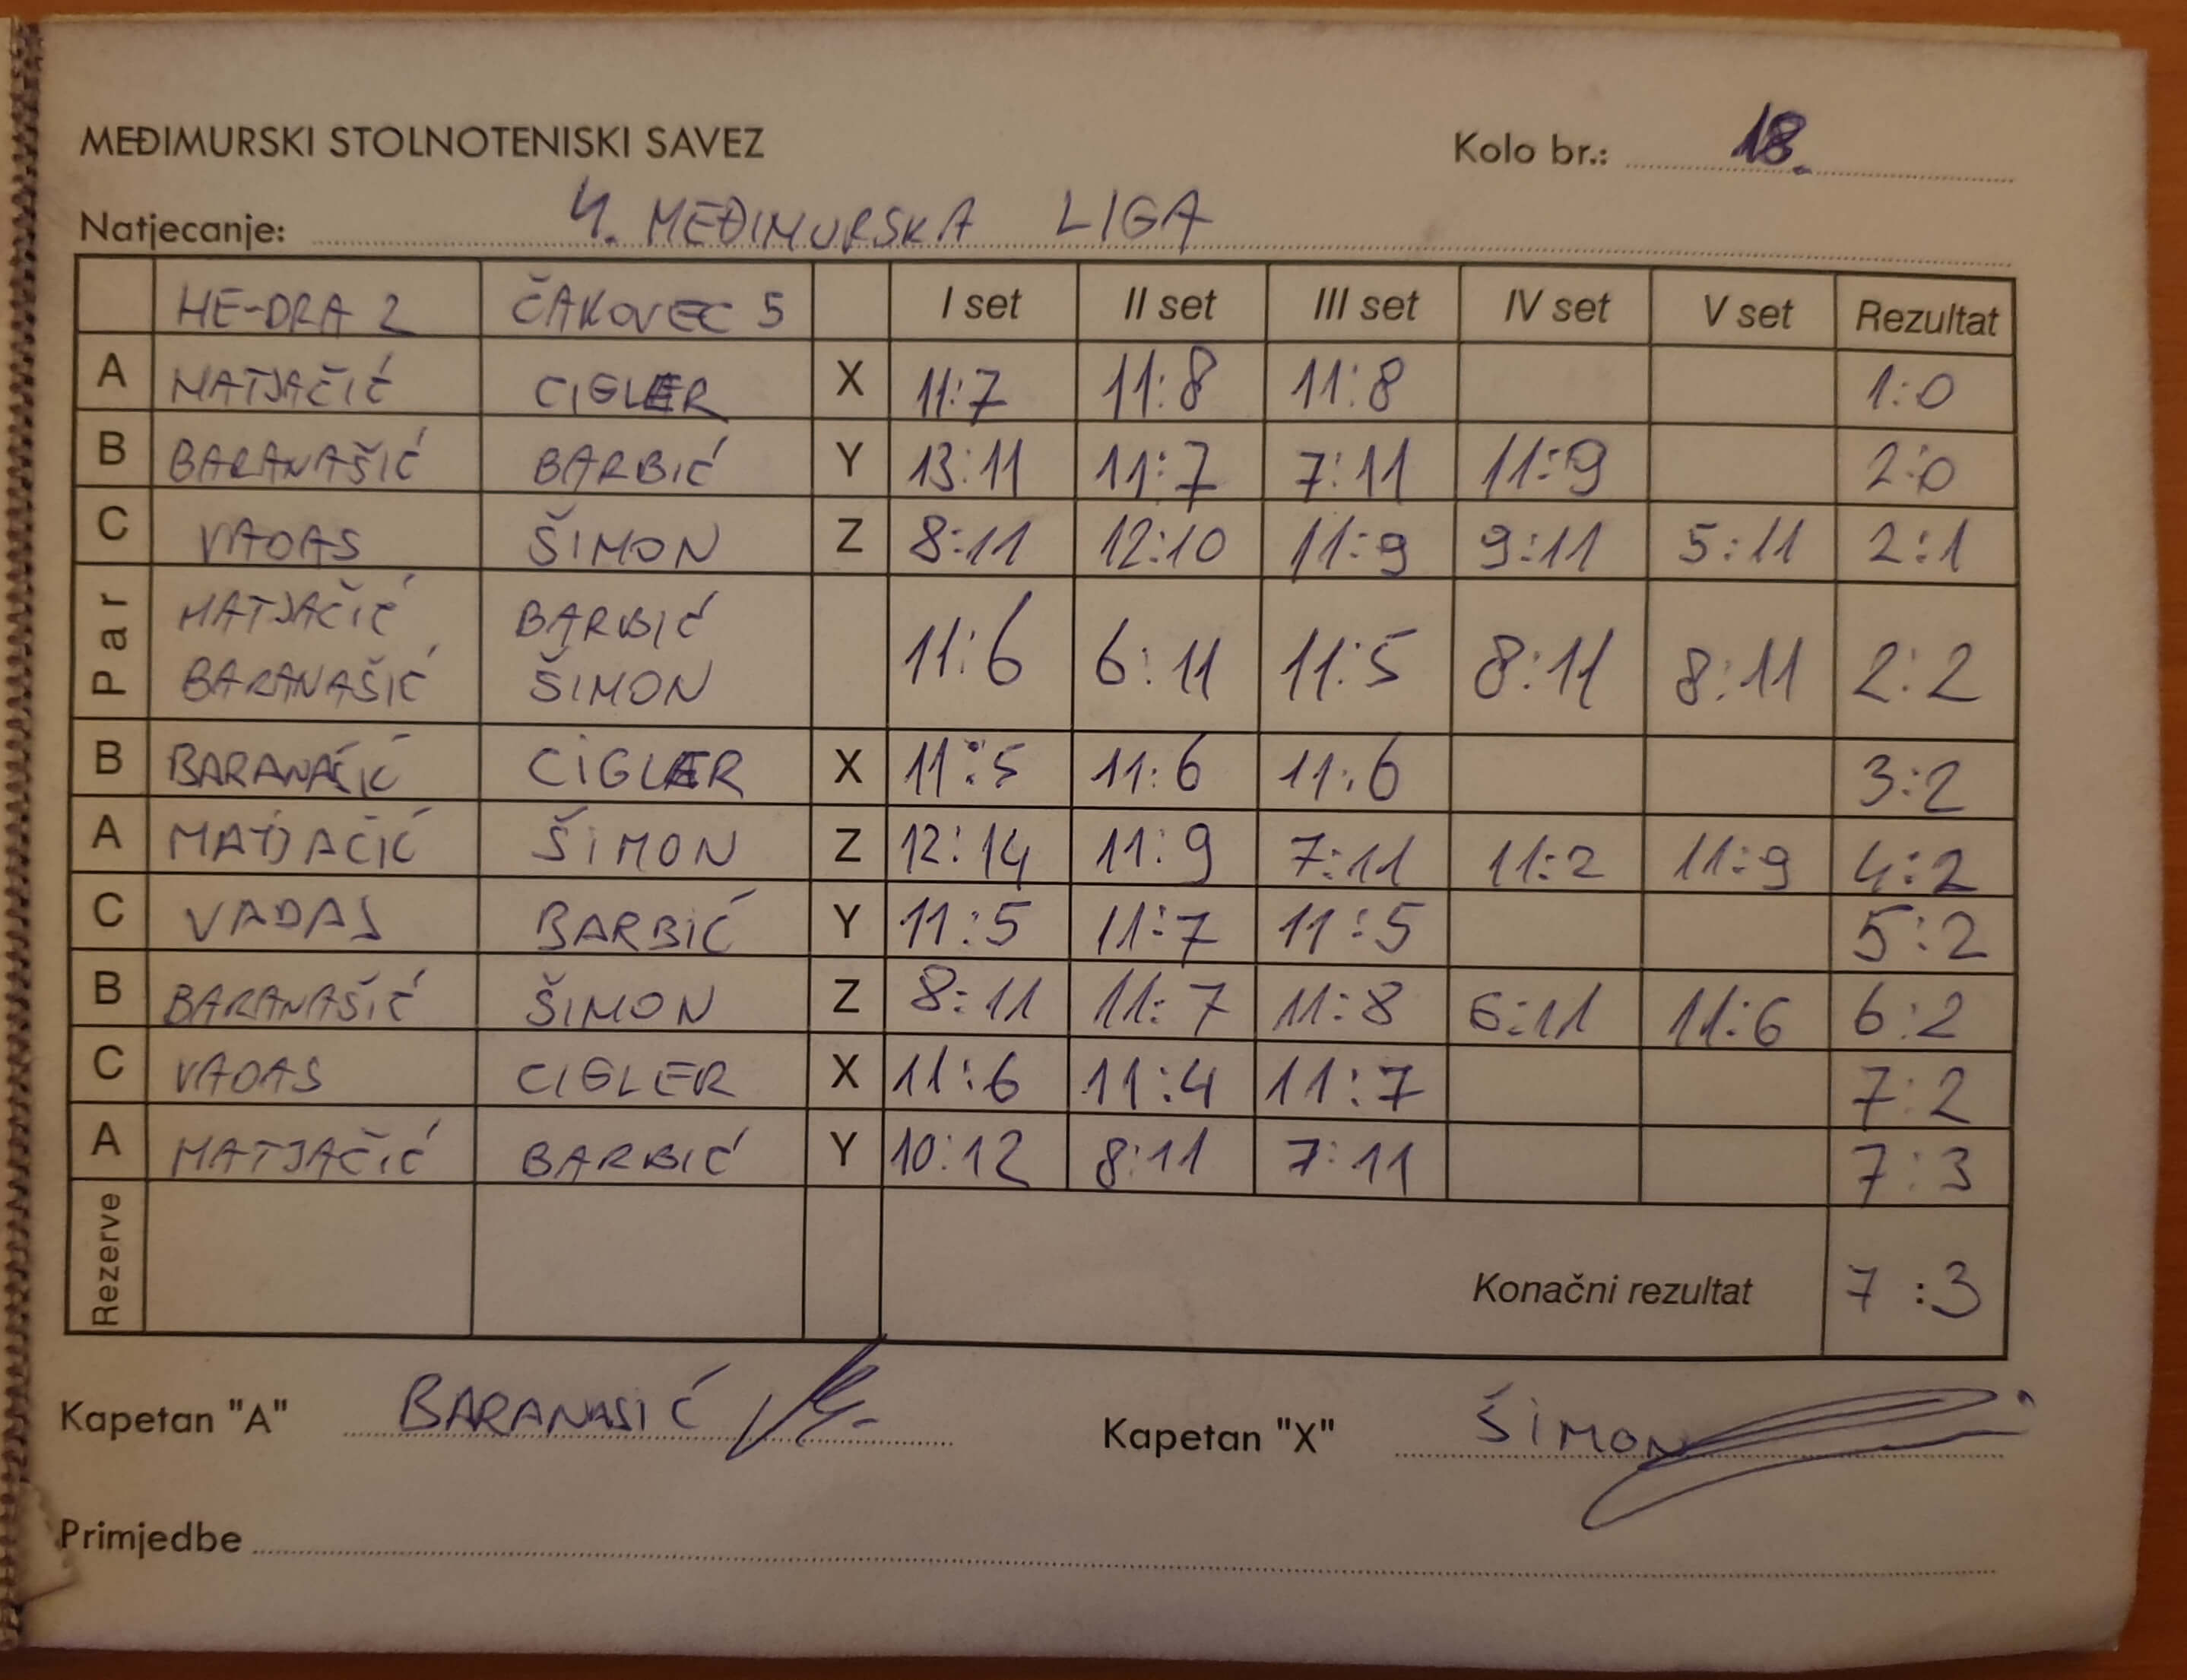 MEĐIMURSKI STOLNOTENISKI SAVEZ Kolo br.: 18.
Natjecanje: 4. MEĐIMURSKA LIGA
HE-DRA 2 ČAKOVEC 5 I set II set III set IV set V set Rezultat
A MATJAČIĆ CIGLER X 11:7 11:8 11:8 1:0
B BARANAŠIĆ BARBIĆ Y 13:11 11:7 7:11 11:9 2:0
C VADAS ŠIMON Z 8:11 12:10 11:9 9:11 5:11 2:1
Par MATJAČIĆ BARBIĆ
BARANAŠIĆ ŠIMON 11:6 6:11 11:5 8:11 8:11 2:2
B BARANAŠIĆ CIGLER X 11:5 11:6 11:6 3:2
A MATJAČIĆ ŠIMON Z 12:14 11:9 7:11 11:2 11:9 4:2
C VADAS BARBIĆ Y 11:5 11:7 11:5 5:2
B BARANAŠIĆ ŠIMON Z 8:11 11:7 11:8 6:11 11:6 6:2
C VADAS CIGLER X 11:6 11:4 11:7 7:2
A MATJAČIĆ BARBIĆ Y 10:12 8:11 7:11 7:3
Rezerve Konačni rezultat 7:3
Kapetan "A" BARANASIĆ Kapetan "X" ŠIMON
Primjedbe